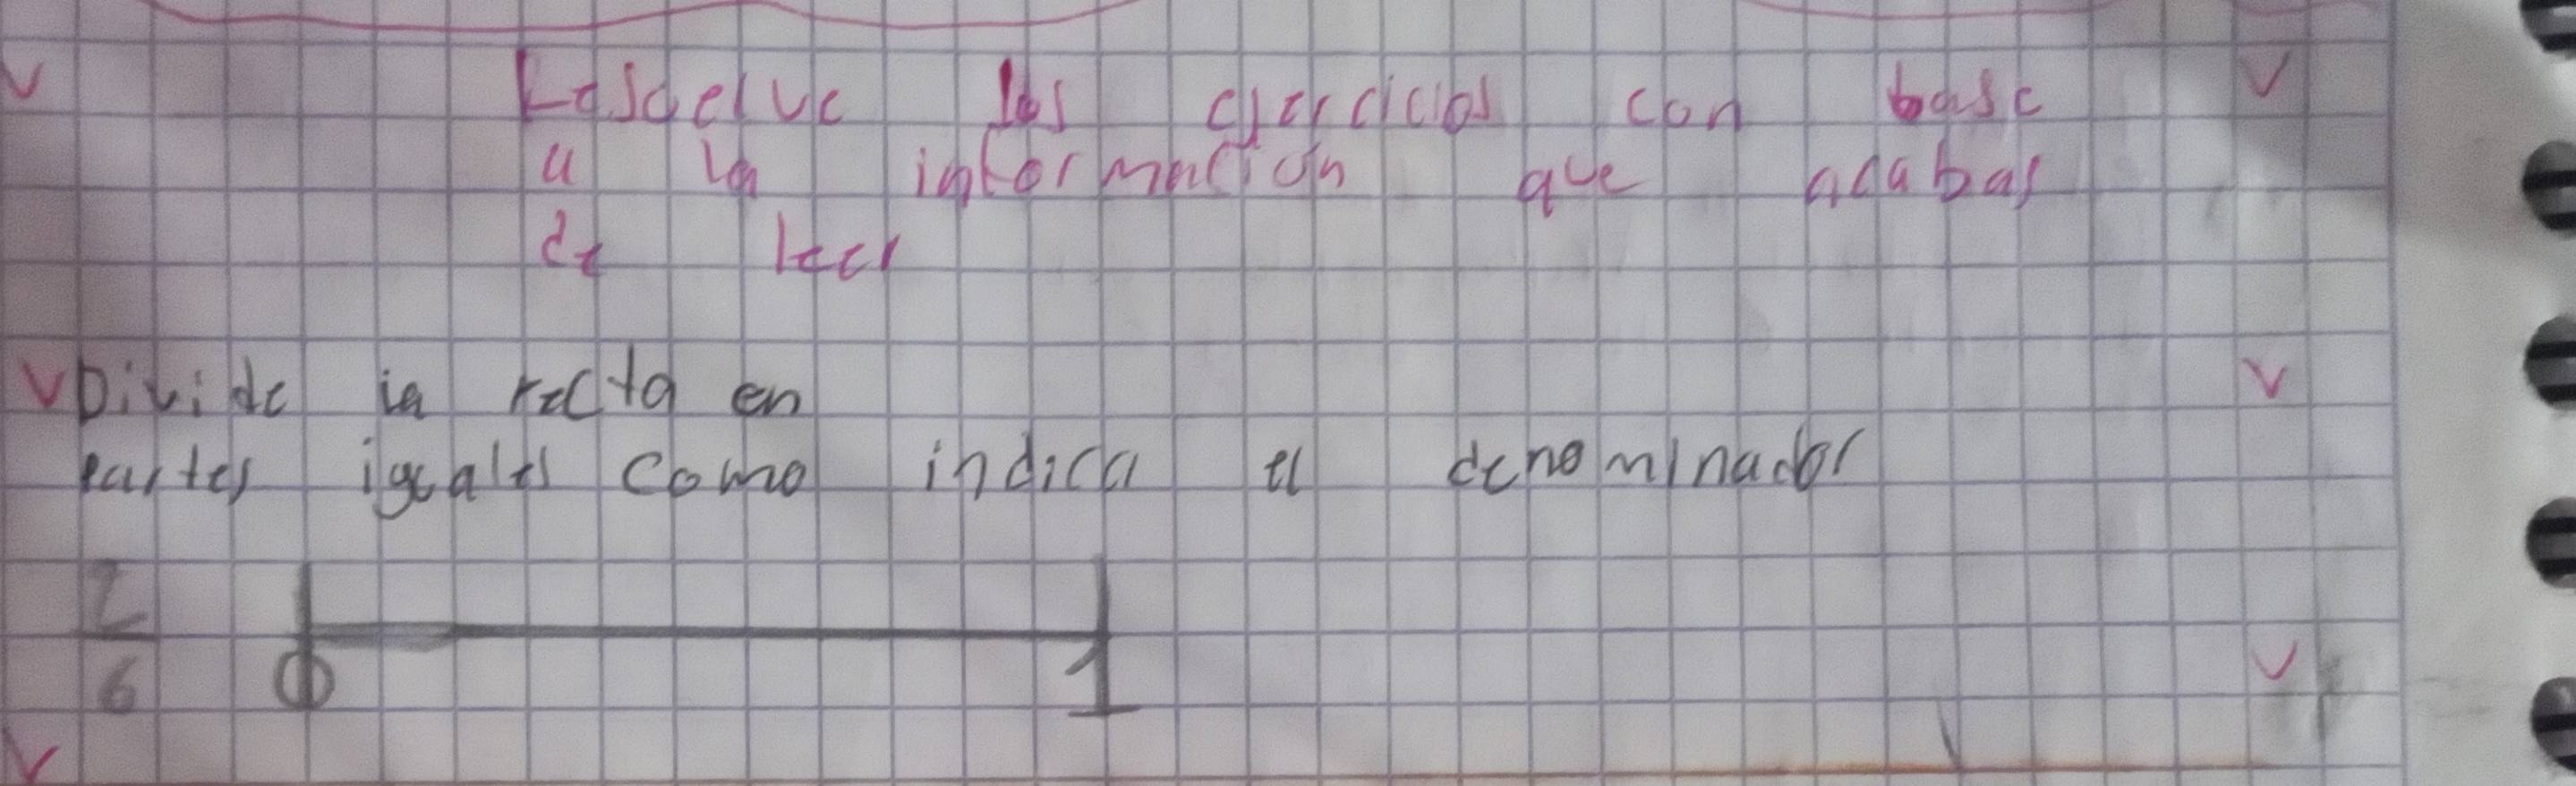 Resuelve los ejercicios con base
a la información que acabas
de leer
Divide la recta en
partes iguales como indica el denominador
2
6
0 1